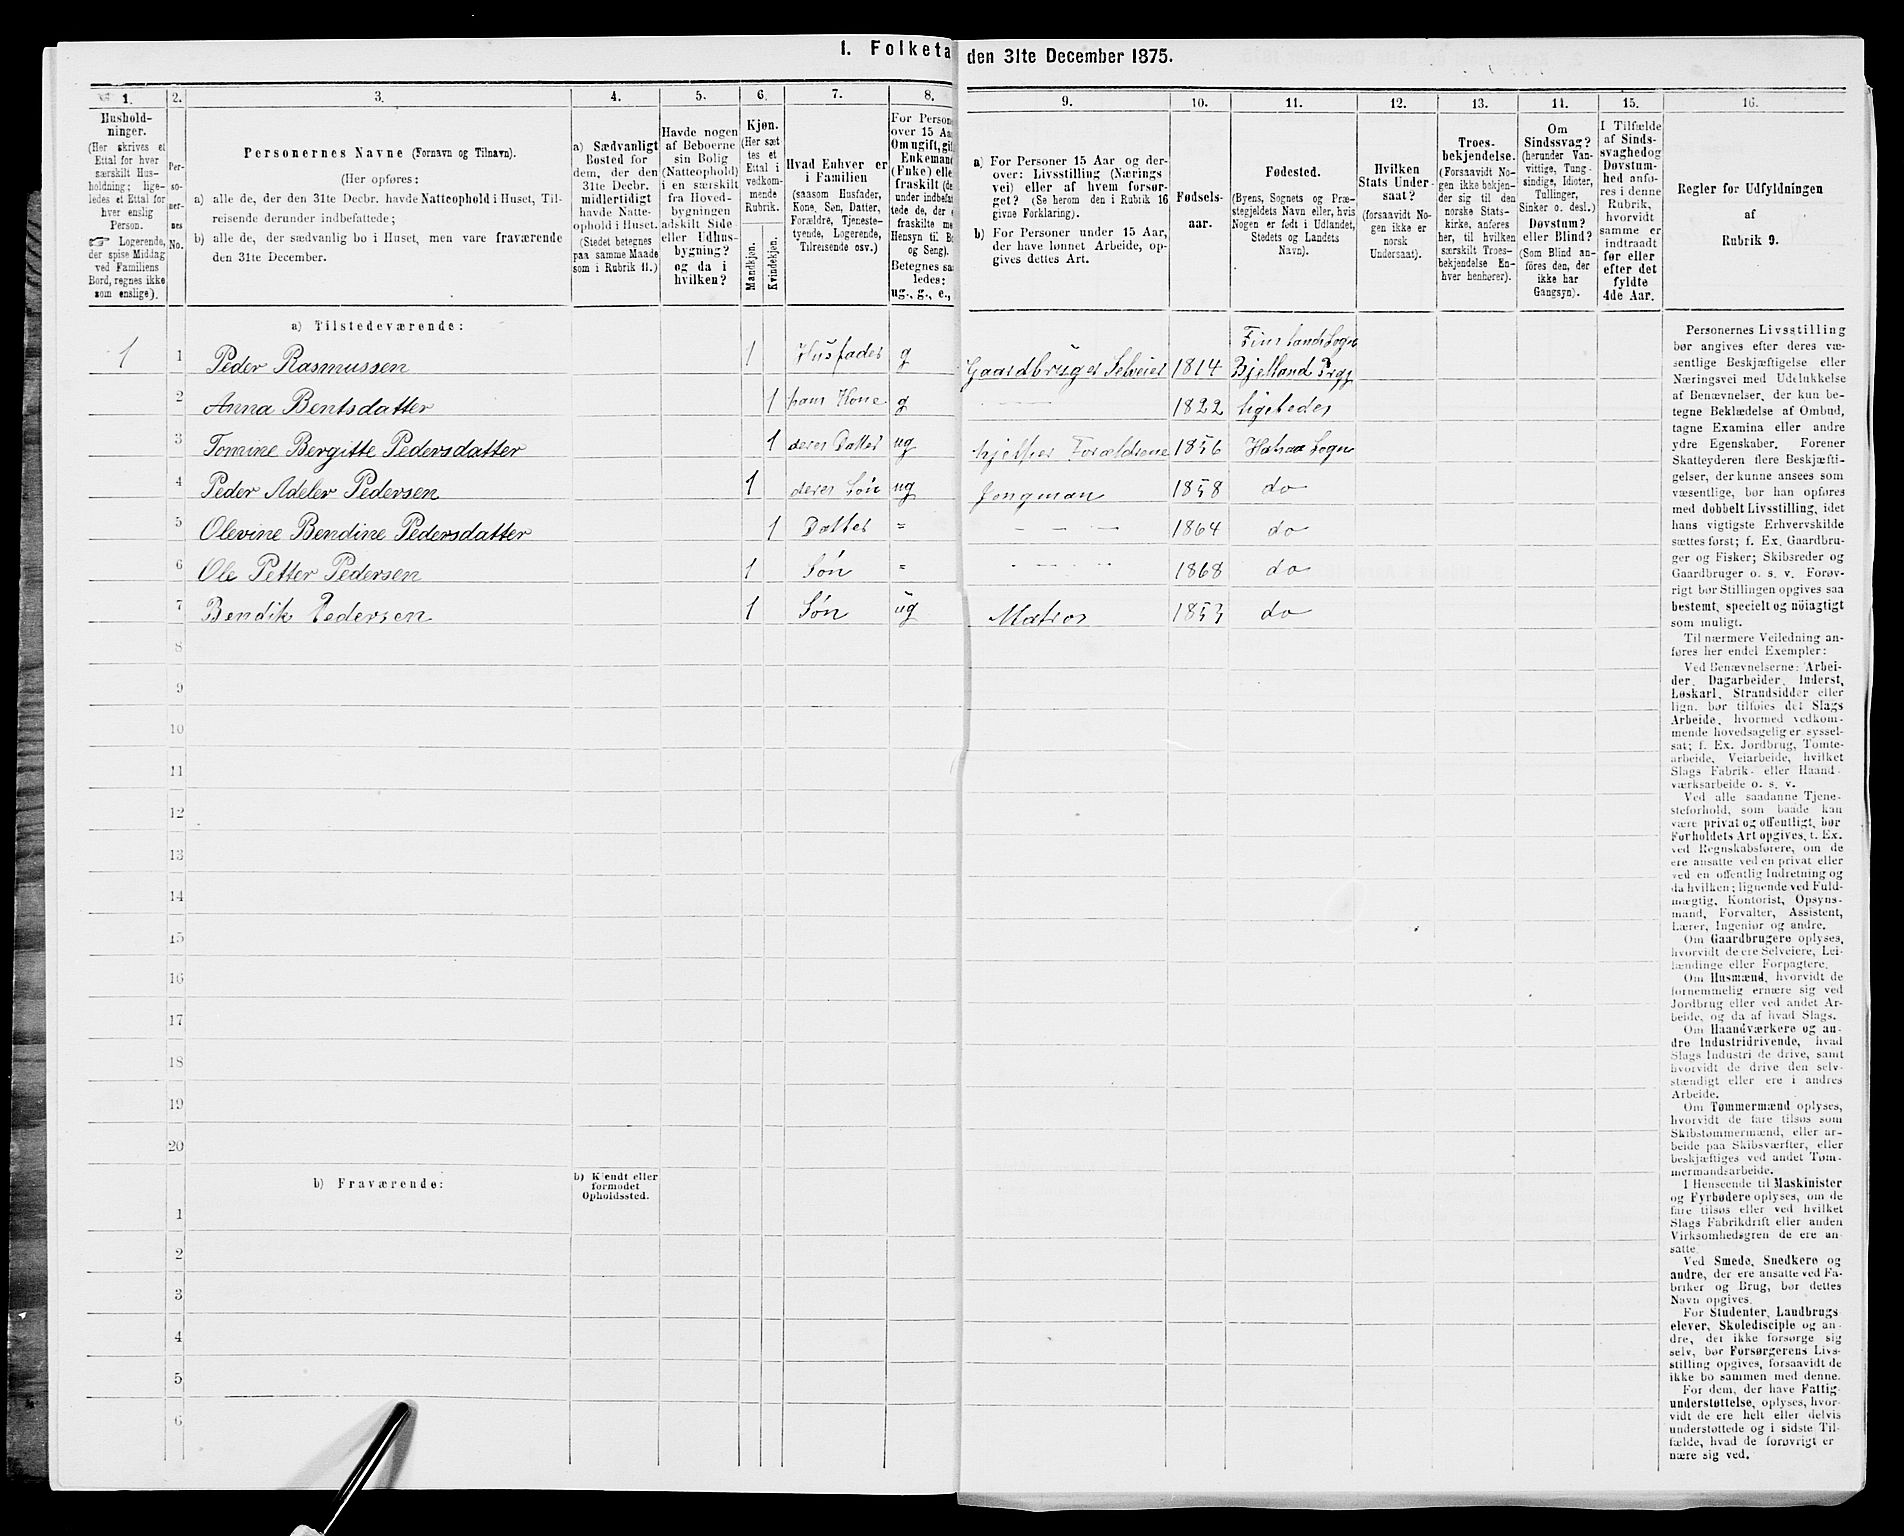 1. Folketa
den 31te December 1875.
1. 2. 3. 4. 5. 6. 7. 8.
9. 10. 11. 12. 13. 14. 15. 16.
Hushold-
ninger.
(Her skrives et
Ettal for hver
særskilt Hus-
holdning; lige-
ledes et Ettal for
hver enslig
Person.
☞ Logerende,
der spise Middag
ved Familiens
Bord, regnes ikke
som enslige).
Per-
so-
ner-
nes
No.
Personernes Navne (Fornavn og Tilnavn).
(Her opføres:
a) alle de, der den 31te Decbr. havde Natteophold i Huset, Til-
reisende derunder indbefattede;
b) alle de, der sædvanlig bo i Huset, men vare fraværende
den 31te December.
a) Sædvanligt
Bosted for
dem, der den
31te Decbr.
midlertidigt
havde Natte-
ophold i Huset.
(Stedet betegnes
paa samme Maade
som i Rubrik 11.)
Havde nogen
af Beboerne
sin Bolig
(Natteophold)
i en særskilt
fra Hoved-
bygningen
adskilt Side-
eller Udhus-
bygning?
og da i
hvilken?
Kjøn.
(Her sæt
tes et
Ettal i
vedkom-
mende
Rubrik.
Mandkjøn.
Kvindekjøn.
Hvad Enhver er
i Familien
(saasom Husfader,
Kone, Søn, Datter,
Forældre, Tjeneste-
tyende, Logerende,
Tilreisende osv.)
For Persone
over 15 Aa
Om ugift, gif
Enkemand
(Enke) elle
fraskilt (de
under indbefat
tede de, der e
fraskilte me
Hensyn til Bo
og Seng).
Betegnes saa
ledes:
ug., g., e.,
a) For Personer 15 Aar og der-
over: Livsstilling (Nærings
vei) eller af hvem forsør-
get? (Se herom den i Rubrik 16
givne Forklaring).
b) For Personer under 15 Aar,
der have lønnet Arbeide, op-
gives dettes Art.
Fødsels-
aar.
Fødested.
(Byens, Sognets og Præ-
stegjeldets Navn eller, hvis
Nogen er født i Udlandet,
Stedets og Landets
Navn).
Hvilken
Stats Under-
saat?
(forsaavidt No-
gen ikke er
norsk
Undersaat).
Troes-
bekjendelse.
(Forsaavidt No-
gen ikke bekjen-
der sig til den
norske Stats-
kirke, anføres
her, til hvilken
særskilt Troes-
bekjendelse En-
hver henhører).
Om
Sindssvag?
(herunder Van-
vittige, Tung-
sindige, Idioter,
Tullinger,
Sinker o. desl.)
Døvstum?
eller Blind?
(Som Blind an-
føres den, der
ikke har
Gangsyn).
I Tilfælde
af Sinds-
svaghed og
Døvstum-
hed anfø-
res i denne
Rubrik,
hvorvidt
samme er
indtraadt
før eller
efter det
fyldte
4de Aar.
Regler for Udfyldningen
af
Rubrik 9.
a) Tilstedeværende:
1 1 Peder Rasmussen 1 Husfader g Gaardbruger Selveier 1814 Finslands Sogn Bjelland Prgj
2 Anna Bentsdatter 1 hans Kone g 1822 ligeledes
3 Tomine Bergitte Pedersdatter 1 deres Datter ug hjelper Forældrene 1856 Sogn
4 Peder Adeler Pedersen 1 deres Søn ug Jongman 1858 do
5 Olevine Bendine Pedersdatter 1 Datter " 1864 do
6 Ole Petter Pedersen 1 Søn " 1868 do
7 Bendik Pedersen 1 Søn ug Matros 1853 do
8
9
10
11
12
13
14
15
16
17
18
19
20
b) Fraværende:
b) Kjendt eller
formodet
Opholdssted.
1
2
3
4
5
6
Personernes Livsstilling
bør angives efter deres væ-
sentlige Beskjæftigelse eller
Næringsvei med Udelukkelse
af Benævnelser, der kun be-
tegne Beklædelse af Ombud,
tagne Examina eller andre
ydre Egenskaber. Forener
Skatteyderen flere Beskjæfti-
gelser, der kunne ansees som
væsentlige, bør han opføres
med dobbelt Livsstilling, idet
hans vigtigste Erhvervskilde
sættes først; f. Ex. Gaardbru-
ger og Fisker; Skibsreder og
Gaardbruger o. s. v. Forøv-
rigt bør Stillingen opgives saa
bestemt, specielt og nöiagtigt
som muligt.
Til nærmere Veiledning an-
føres her endel Exempler:
Ved Benævnelserne: Arbei-
der, Dagarbeider, Inderst,
Løskarl, Strandsidder eller
lign. bør tilføies det Slags
Arbeide, hvormed vedkom-
mende hovedsagelig er syssel-
sat; f. Ex. Jordbrug, Tomte-
arbeide, Veiarbeide, hvilket
Slags Fabrik- eller Haand-
værksarbeide o. s. v.
Ved alle saadanne Tjene-
steforhold, som baade kan
være privat og offentligt, bør
Forholdets Art opgives, t. Ex.
ved Regnskabsførere, om de
ere ansatte ved en privat eller
ved en offentlig Indretning og
da hvilken; lignende ved Fuld-
mægtig, Kontorist, Opsyns-
mand, Forvalter, Assistent,
Lærer, Ingeniør og andre.
Om Gaardbrugere oplyses,
hvorvidt de ere Selveiere, Lei-
lændinge eller Forpagtere.
Om Husmænd, hvorvidt de
fornemmelig ernære sig ved
Jordbrug eller ved andet Ar-
beide, og da af hvad Slags.
Om Haandværkere og an-
dre Industridrivende, hvad
Slags Industri de drive, samt
hvorvidt de drive den selv-
stændigt eller ere i andres
Arbeide.
Om Tømmermænd oplyses,
hvorvidt de fare tilsøs som
Skibstømmermænd, eller ar-
beide paa Skibsværfter, eller
beskjæftiges ved andet Tøm-
mermandsarbeide.
I Henseende til Maskinister
og Fyrbødere oplyses, om de
fare tilsøs eller ved hvilket
Slags Fabrikdrift eller anden
Virksomhedsgren de ere an-
satte.
Ved Smede, Snedkere og
andre, der ere ansatte ved Fa-
briker og Brug, bør dettes
Navn opgives.
For Studenter, Landbrugs
elever, Skoledisciple og an-
dre, det ikke forsørge sig
selv, bør Forsørgerens Livs-
stilling opgives, forsaavidt de
ikke bo sammen med denne.
For dem, der have Fattig-
understøttelse, oplyses, hvor-
vidt de ere helt eller delvis
understøttede og i sidste Til-
fælde, hvad de forøvrigt er
nære sig ved.